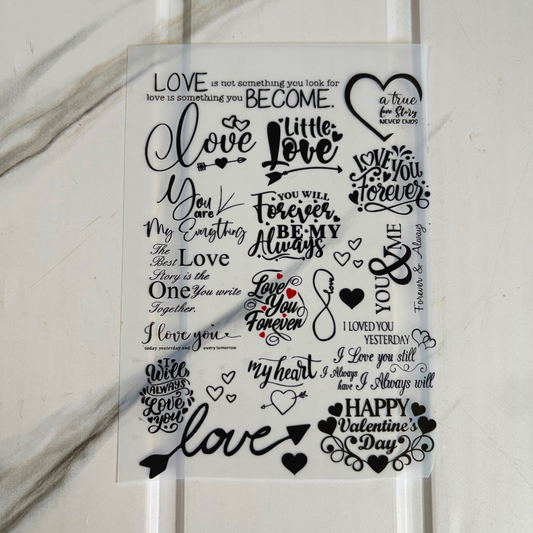 LOVE is not something you look for
love is something you BECOME.
love
Little
Love
a true
Love Story
NEVER ENDS
LOVE YOU
Forever
You
are
My Everything
YOU WILL
Forever
BE MY
Always
The
Best Love
Story is the
One You write
Together.
Love
You
Forever
love
YOU & ME
Forever & Always
I love you
today, yesterday and every tomorrow
I LOVED YOU
YESTERDAY
I Love you still
I Always
have I Always will
my heart
I
Will
ALWAYS
Love
YOU
love
HAPPY
Valentine's
Day